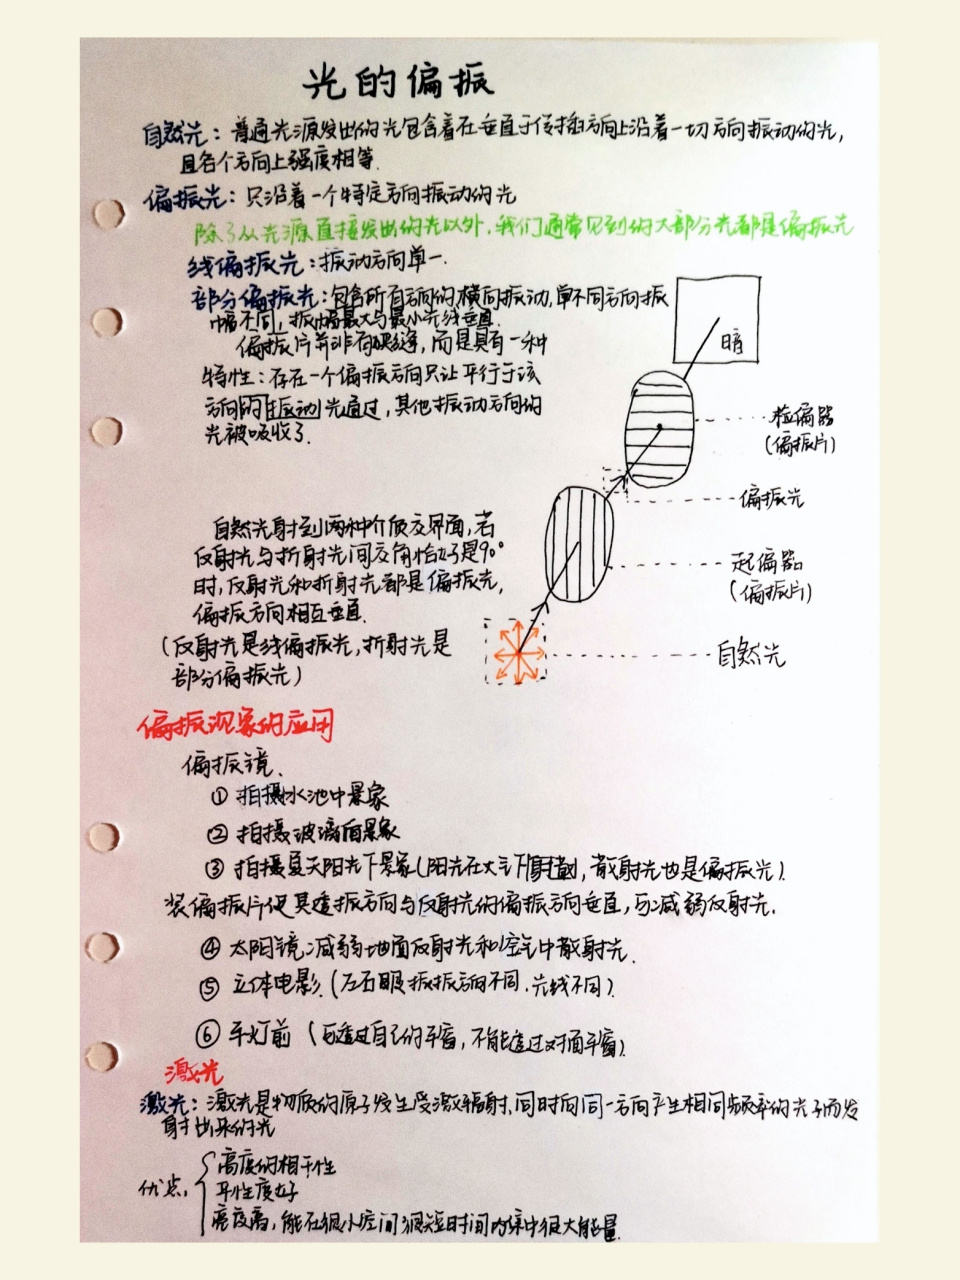 光的偏振
自然光：普通光源发出的光包含着在垂直于传播方向上沿着一切方向振动的光，
且各个方向上强度相等.
偏振光：只沿着一个特定方向振动的光
除了从光源直接发出的光以外，我们通常见到的大部分光都是偏振光
线偏振光：振动方向单一.
部分偏振光：包含所有方向的横向振动，单不同方向振
幅不同，振幅最大与最小光线垂直.
偏振片并非有硬缝，而是具有一种
特性：存在一个偏振方向只让平行于该
方向的振动光通过，其他振动方向的
光被吸收了.
暗
检偏器
(偏振片)
偏振光
起偏器
(偏振片)
自然光
自然光射到两种介质交界面，若
反射光与折射光间交角恰好是90°
时，反射光和折射光都是偏振光，
偏振方向相互垂直.
(反射光是线偏振光，折射光是
部分偏振光)
偏振现象的应用
偏振镜.
① 拍摄水池中景象
② 拍摄玻璃面景象
③ 拍摄夏天阳光下景象(阳光在大气下散射，散射光也是偏振光).
装偏振片使其透振方向与反射光的偏振方向垂直，可减弱反射光.
④ 太阳镜:减弱地面反射光和空气中散射光.
⑤ 立体电影.(左右眼振振方向不同.光线不同).
⑥ 车灯前 (可透过自己的车窗，不能透过对面车窗).
激光
激光：激光是物质的原子发生受激辐射，同时向同一方向产生相同频率的光子而发
射出来的光
优点，
高度的相干性
平性度好
亮度高，能在很小空间很短时间内集中很大能量.